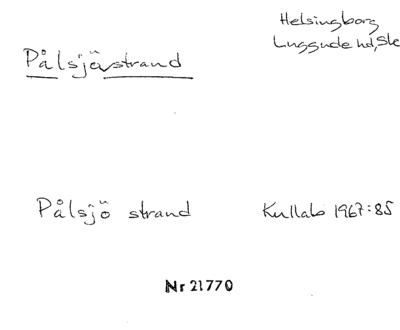 Helsingborg
Luggude hd, Sk
Pålsjöstrand
Pålsjö strand Kullabo 1967:85
Nr 21770